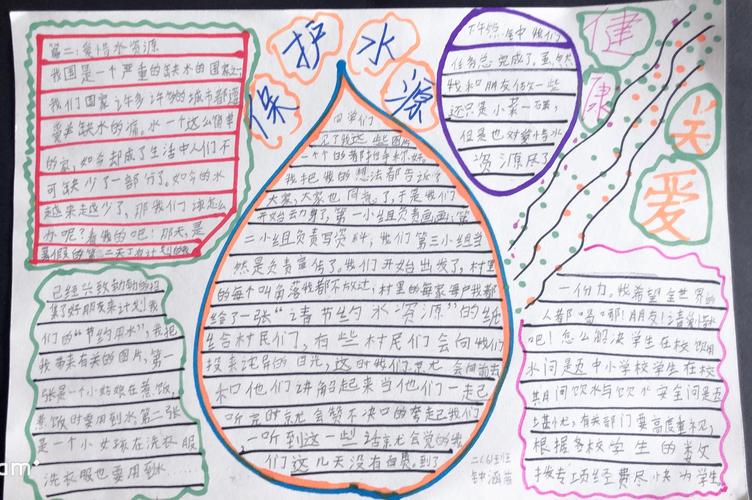 保护水源
健康
关爱
第二:爱惜水资源
我国是一个严重的缺水的国家,
我们国家许多许多的城市都遭
受着缺水的痛,水一个这么简单
的家,如今却成了生活中人们不
可缺少了一部分了。如今的水
越来越少了,那我们该怎么
办呢?看我的吧!那天,是
暑假的第二天了有计划的我
已经兴致勃勃的召
集了好朋友来计划我
们的“节约用水”,我把
我带来有关的图片,第一
张是一个小姑娘在煮饭,
煮饭时要用到水,第二张
是一个小女孩在洗衣服
洗衣服也要用到水……
同学们
见了我这些图片
一个个的都拍手称好。
我把我的想法都告诉了
大家,大家也同意了,于是我们
开始动身了,第一小组负责画画,第
二小组负责写资料,我们第三小组当
然是负责宣传了。我们开始出发了,村里
的每个叫角落我都不放过,村里的每家每户我都
给了一张“请节约水资源”的纸
给村民们,有些村民们会向我们
投来诧异的目光,这时我们就会向前去
和他们讲解起来当他们一走起
听完时就会赞不决口的夸起我们
一听到这一些话就会觉的我
们这几天没有白费。到了
大自然当中我们
任务总完成了,虽然
我和朋友做一些
还只是小菜一碟,
但是也对爱惜水
资源尽了
一份力。我希望全世界的
人都喝哪!朋友!请爱惜水
吧!怎么解决学生在校饮用
水问是五中小学校学生在校
其月间饮水与饮水安全问是五
十甚忧,有关部门要高度重视,
根据各校学生的数
拨专项经费尽快为学生